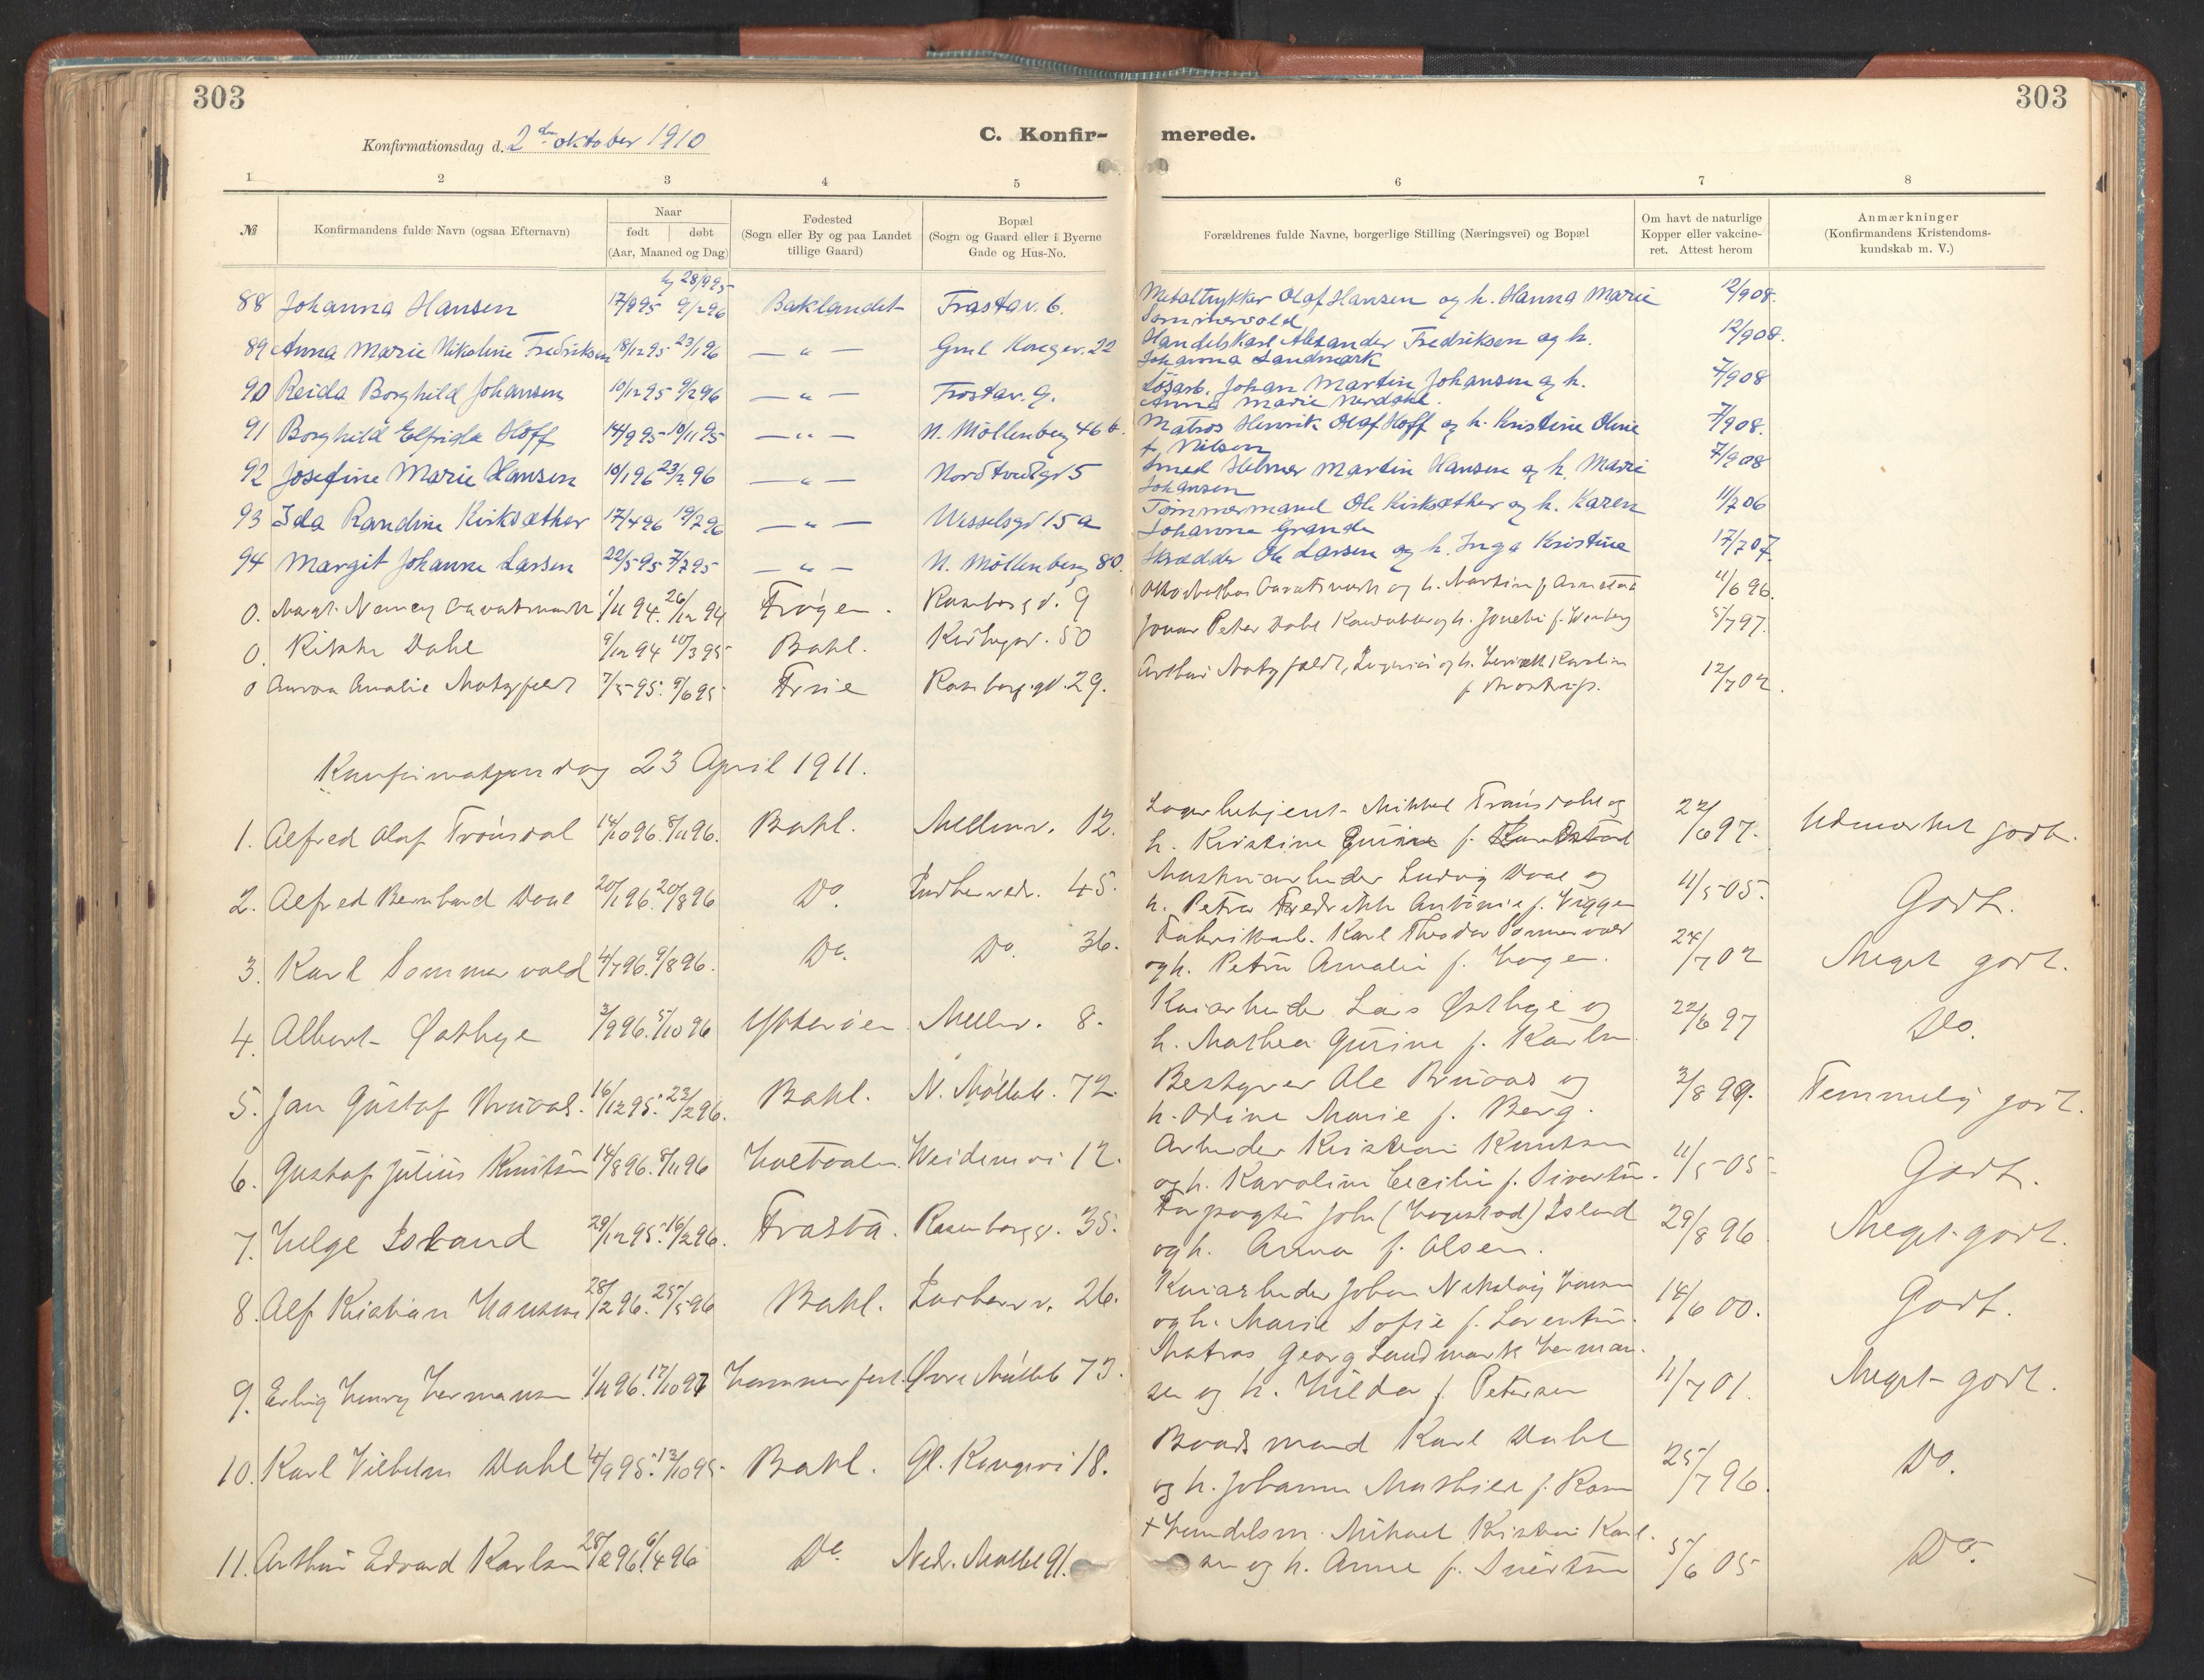 303
303
Konfirmationsdag d. 2den oktober 1910
C. Konfir-
merede.
1 2 3 4 5 6 7 8
№
Konfirmandens fulde Navn (ogsaa Efternavn)
Naar
født døbt
(Aar, Maaned og Dag)
Fødested
(Sogn eller By og paa Landet
tillige Gaard)
Bopæl
(Sogn og Gaard eller i Byerne
Gade og Hus-No.
Forældrenes fulde Navne, borgerlige Stilling (Næringsvei) og Bopæl
Om havt de naturlige
Kopper eller vakcine-
ret. Attest herom
Anmærkninger
(Konfirmandens Kristendoms-
kundskab m. V.)
28/9 95
88 Johanna Hansen 17/9 95 9/2 96 Baklandet Frostav. 6. Metaltrykker Olaf Hansen og h. Hanna Marie 12/9 08.
Sommervold
89 Anna Marie Nikoline Fredriksen 18/12 95 23/1 96 — " — Gml Kongev. 22 Handelskarl Alexander Fredriksen og h. 12/9 08.
Johanna Landmark
90 Reida Borghild Johansen 10/12 95 9/2 96 — " — Frostav. 9. Løsarb. Johan Martin Johansen og h. 7/9 08
Anna Marie Nerdahl.
91 Borghild Elfrida Hoff 14/9 95 10/11 95 — " — N. Møllenberg 46 b. Matros Henrik Olaf Hoff og h. Kristine Oline 7/9 08.
f. Nilsen
92 Josefine Marie Hansen 10/1 96 23/2 96 — " — Nordtvedgt 5 Smed Helmer Martin Hansen og h. Marie 7/9 08
Johansen
93 Ida Randine Kirksæther 17/4 96 19/7 96 — " — Wesselsgt 15 a Tømmermand Ole Kirksæther og h. Karen 11/7 06
Johanna Grande
94 Margit Johanne Larsen 22/5 95 7/7 95 — " — N. Møllenberg 80. Skrædder Ole Larsen og h. Inga Kristine 17/7 07.
0. Margt. Nancy 1/11 94. 26/12 94 Rosenborg d. 9 og h. 11/6 96.
0. Rikke Dahl 9/12 94 10/3 95 Bakl. 50 Jonas Peter Dahl og h. 5/7 97.
0 Amalie 7/5 95. 9/6 95 Rosenborg gt. 29. og h. 12/7 02.
Konfirmasjonsdag 23 April 1911.
1. Alfred Olaf Trønsdal 14/10 96. 8/11 96. Bakl. Mellemv. 12. Lagerbetjent Mikkel Trønsdahl og 22/6 97. Udmærket godt.
h. Kristine f.
2. Alfred Bernhard Daae 20/1 96. 20/8 96 Do. Indherredv. 45. Maskinarbeider Ludvig Daae og 11/5 05. Godt.
h. Petra Fredrikke Antonie f. Vigger
3. Karl Sommervold 4/7 96. 9/8 96. Do. Do. 36. Fabrikarb. Karl Theodor Sommervold 24/7 02 Meget godt.
og h. Petra Amalie f. Hagen.
4. Albert Østbye 3/9 96. 5/10 96 Ytterøen Mellemv. 8. Kaiarbeider Lars Østbye og 22/6 97 Do.
h. Mathea Gurine f. Karlsen.
5. Jan Gustaf Bruaas. 16/12 95. 23/2 96. Bakl. N. Møllenb. 72. Bestyrer Ole Bruaas og 3/8 99. Temmelig godt.
h. Odine Marie f. Berg.
6. Gustaf Julius Knutsen 14/8 96. 8/11 96 Holtaalen. Weidemv 12. Arbeider Kristian Knutsen 11/5 05 Godt.
og h. Karoline Cecilie f. Sivertsen.
7. Helge Island 29/12 95. 16/2 96. Frosta. Rosenborggt. 35. Forpagter John (Hogstad) Island 29/8 96 Meget godt.
og h. Anna f. Olsen.
8. Alf Kristian Hansen 28/2 96. 25/5 96 Bakl. Indherv. 26. Kaiarbeider Johan Nikolai Hansen 14/6 00. Godt.
og h. Marie Sofie f. Lorentsen.
9. Erling Henry Hermansen 1/11 96. 17/10 97 Hammerfest. Øvre Møllenb 73. Matros Georg Landmark Herman- 11/7 01. Meget godt.
sen og h. Hilda f. Petersen
10. Karl Vilhelm Dahl 4/9 95. 13/10 95 Bakl. Gl. Kongevei 18. Baadsmand Karl Dahl 25/7 96. Do.
og h. Johanna Mathisen f. Rosen
11. Arthur Edvard Karlsen 28/2 96. 6/4 96 Do. Nedr. Møllenb 91. + Handelsm. Mikael Kristian Karl- 5/6 05 Do.
sen og h. Anne f. Sivertsen